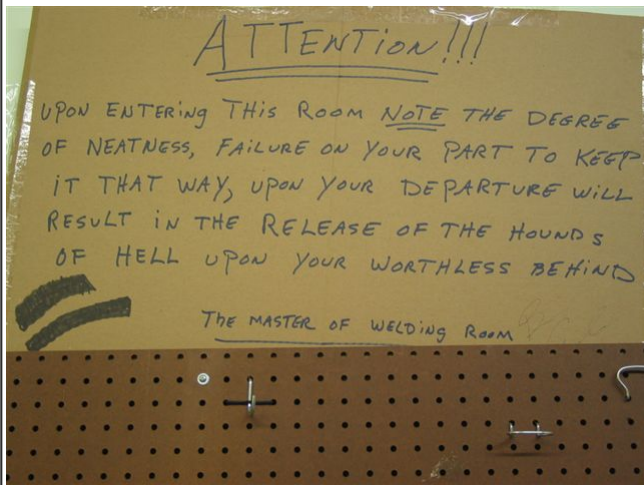 ATTENTION!!!
UPON ENTERING THIS ROOM NOTE THE DEGREE
OF NEATNESS, FAILURE ON YOUR PART TO KEEP
IT THAT WAY, UPON YOUR DEPARTURE WILL
RESULT IN THE RELEASE OF THE HOUNDS
OF HELL UPON YOUR WORTHLESS BEHIND
THE MASTER OF WELDING ROOM